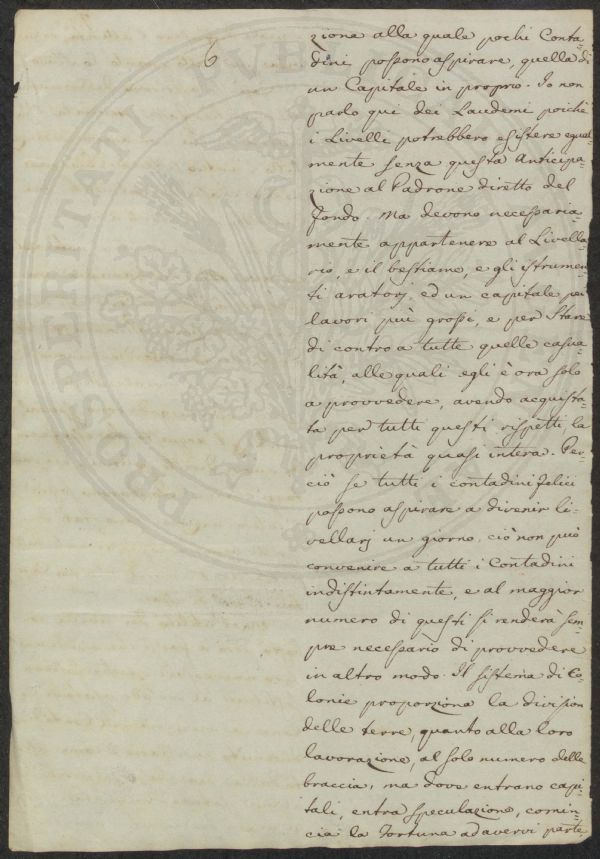 6
zione alla quale pochi Conta=
dini possono aspirare, quella di
un Capitale in proprio. Io non
parlo qui dei Laudemi poichè
i Livelli potrebbero esistere egual=
mente senza questa Anticipa=
zione al Padrone diretto del
fondo. Ma devono necessaria=
mente appartenere al Livella=
rio, e il bestiame, e gli istrumen=
ti aratorj, ed un capitale pei
lavori più grossi, e per Stare
di contro a tutte quelle casua=
lità, alle quali egli è ora solo
a provvedere, avendo acquista=
ta per tutti questi rispetti, la
proprietà quasi intera. Per=
ciò se tutti i contadini felici
possono aspirare a divenir li=
vellarj un giorno, ciò non può
convenire a tutti i Contadini
indistintamente, e al maggior
numero di questi si renderà sem=
pre necessario di provvedere
in altro modo. Il sistema di Co=
lonie proporziona la division
delle terre, quanto alla loro
lavorazione, al solo numero delle
braccia, ma dove entrano capi=
tali, entra speculazione, comin=
cia la Fortuna ad avervi parte,
PROSPERITATI PVB